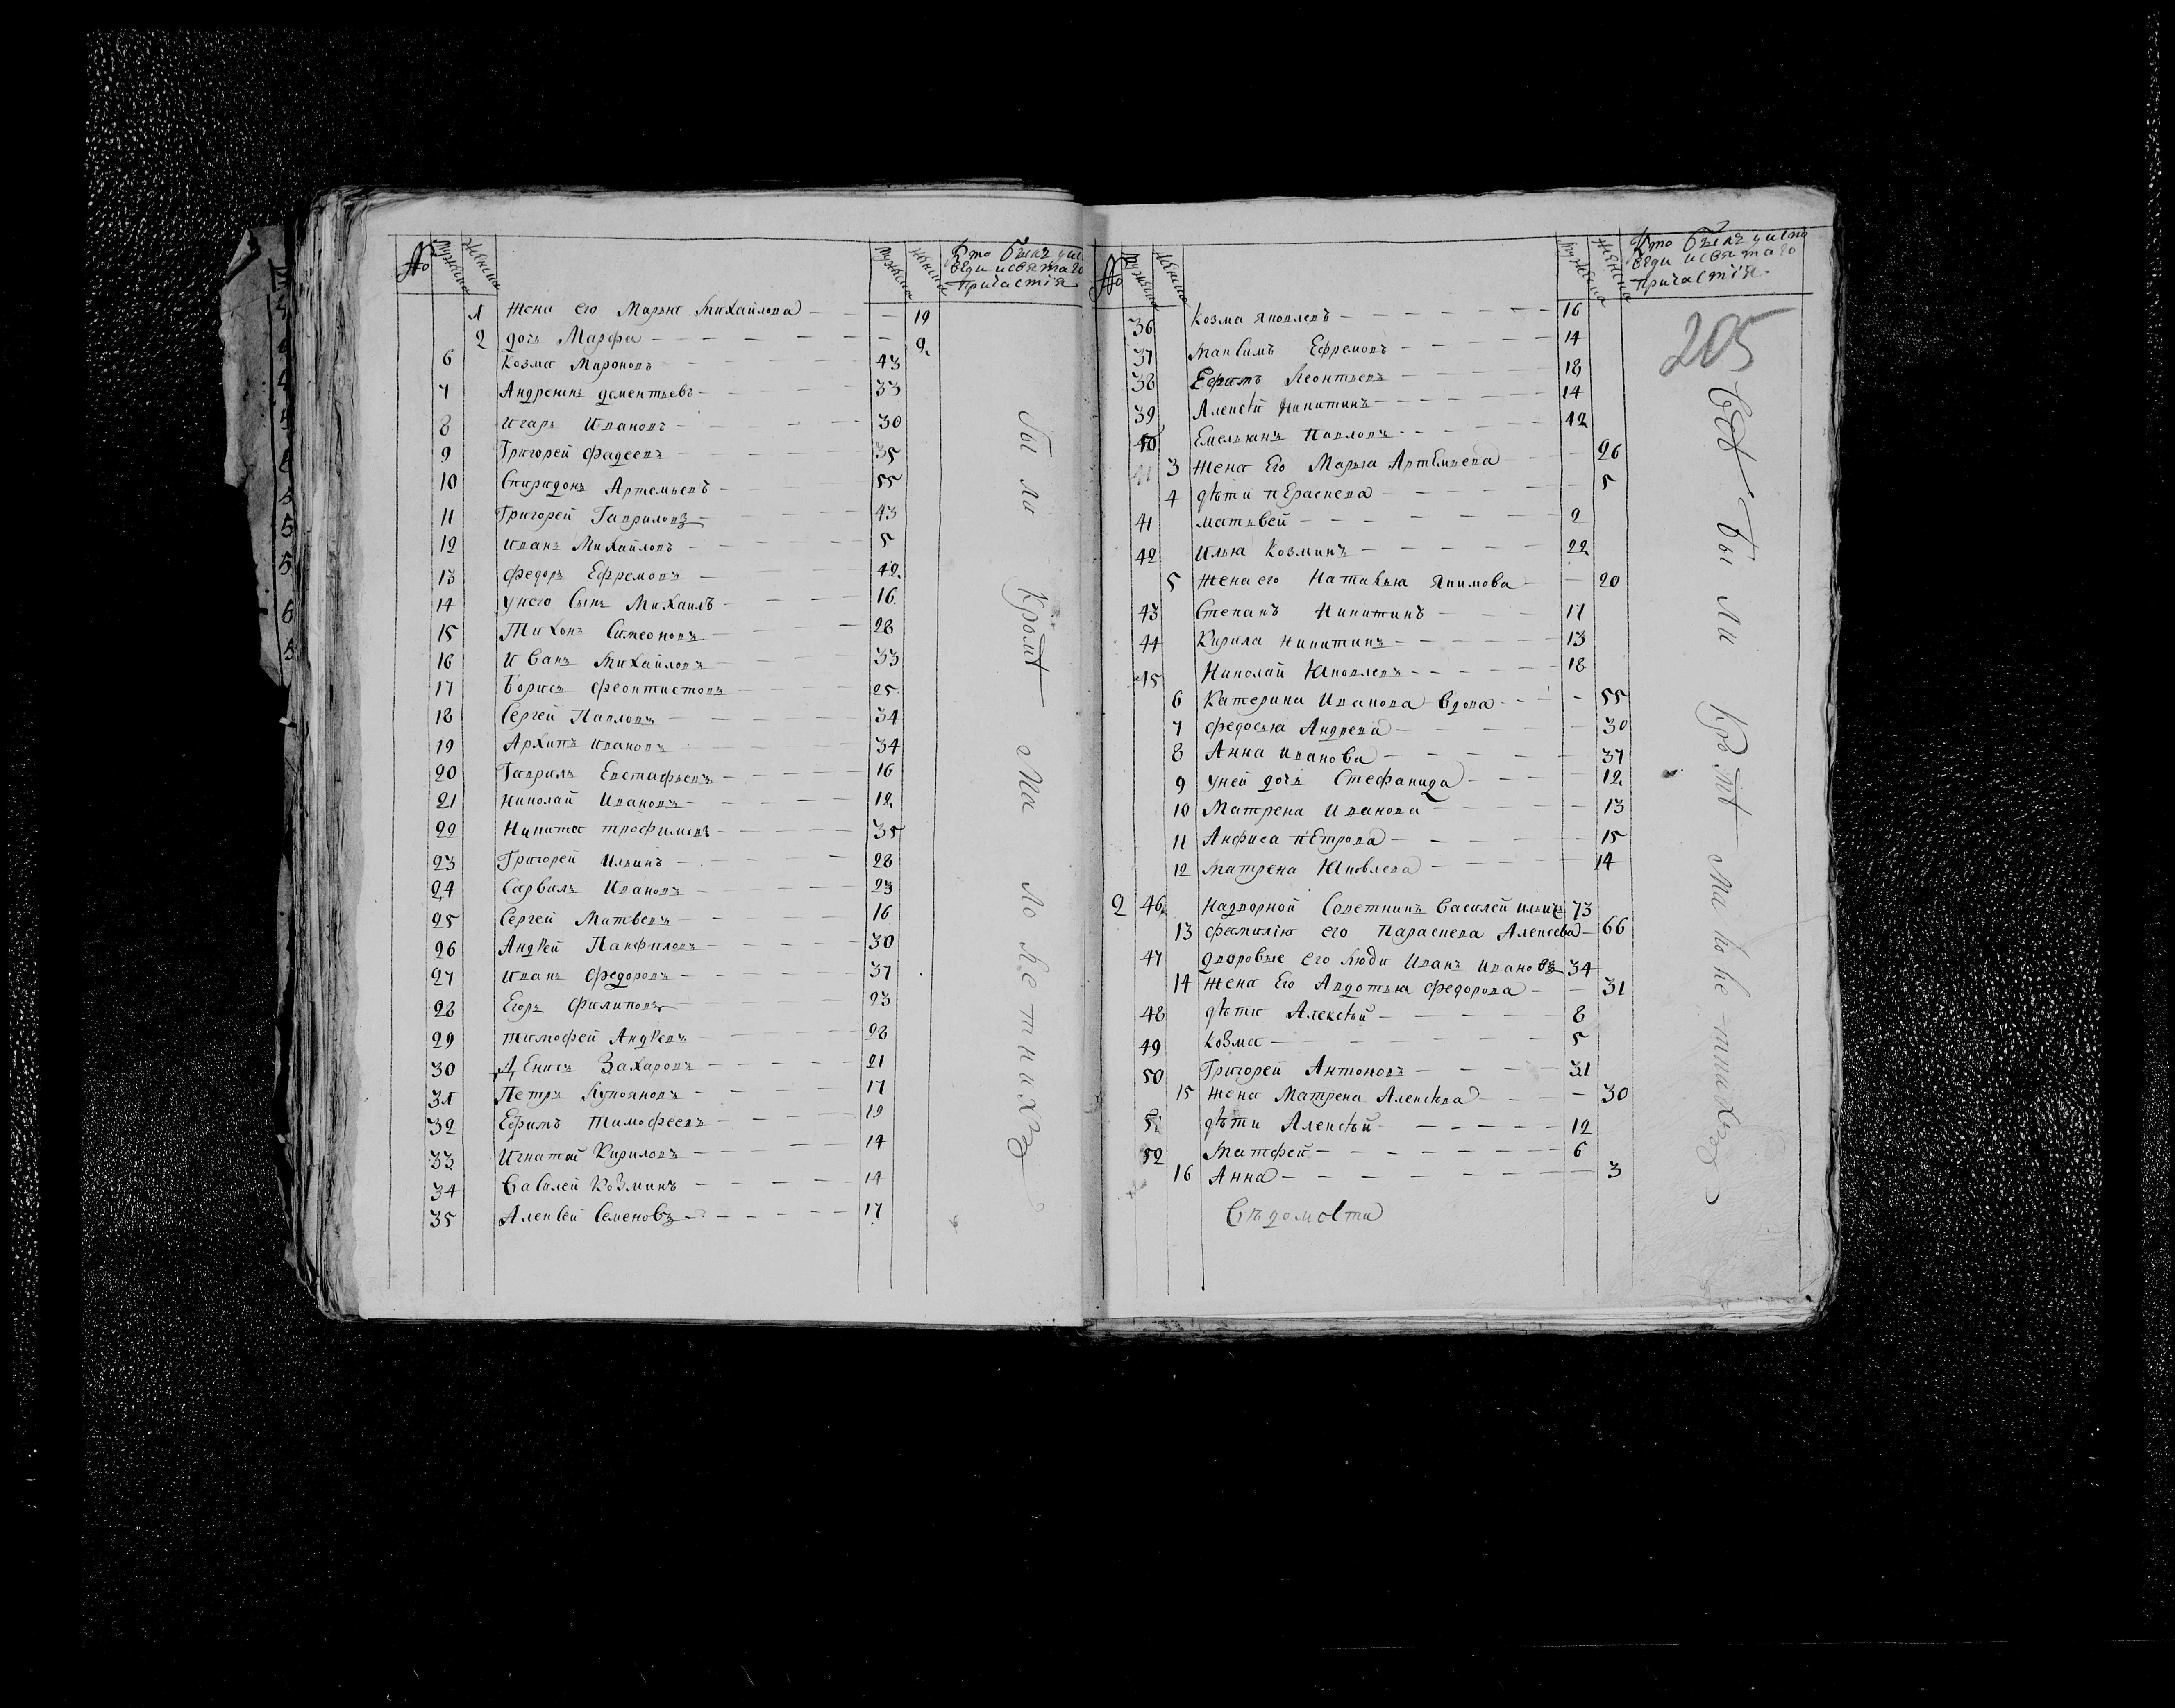 № мужеска женска мужеска женска Кто былъ у испо
веди и святаго
причастія
1 жена его Марья Михайлова 19
2 дочь Марфа 9
6 Козма Мироновъ 43
7 Андреянъ дементьевъ 33
8 Игаръ Ивановъ 30
9 Григорей Фадеевъ 35
10 Спиридонъ Артемьевъ 55
11 Григорей Гавриловъ 43
12 Иванъ Михайловъ 5
13 Федоръ Ефремовъ 42
14 у него сынъ Михаилъ 16
15 Тихонъ Симеоновъ 28
16 Иванъ Михайловъ 33
17 Борисъ Феоктистовъ 25
18 Сергей Павловъ 34
19 Архипъ Ивановъ 34
20 Гаврилъ Евстафьевъ 16
21 Николай Ивановъ 12
22 Никита трофимовъ 35
23 Григорей Ильинъ 28
24 Савилъ Ивановъ 23
25 Сергей Матвевъ 16
26 Андрей Панфиловъ 30
27 Иванъ Федоровъ 37
28 Егоръ Филиповъ 23
29 тимофей Андревъ 28
30 Денисъ Захаровъ 21
31 Петръ Лукояновъ 17
32 Ефимъ Тимофеевъ 19
33 Игнатей Кириловъ 14
34 Василей Козминъ 14
35 Алексей Семеновъ 17
Бы ли кромѣ Ма ло ле тнихъ
№ мужеска женска мужеска женска Кто былъ у испо
веди и святаго
причастія
205
36 Козма Яковлевъ 16
37 Максимъ Ефремовъ 14
38 Ефимъ Леонтьевъ 18
39 Алексѣй Никитинъ 14
40 Емельянъ Павловъ 42
3 жена Его Марья Артемьева 26
4 дѣти пЕраскева 5
41 матвей 2
42 Илья Козминъ 22
5 жена его Наталья Якимова 20
43 Степанъ Никитинъ 17
44 Кирила Никитинъ 13
45 Николай Яковлевъ 18
6 Катерина Иванова вдова 55
7 Федосья Андрева 30
8 Анна Иванова 37
9 у ней дочь Стефанида 12
10 Матрена Иванова 13
11 Анфиса пЕтрова 15
12 Матрена Яковлева 14
2 46 Надворной Советникъ Василей Ильичъ 73
13 Фамилія его Параскева Алексева 66
47 дворовые его люди Иванъ Ивановъ 34
14 жена Его Авдотья Федорова 31
48 дѣти Алексѣй 8
49 Козма 5
50 Григорей Антоновъ 31
15 жена Матрена Алексѣва 30
51 дѣти Алексѣй 12
52 Матфей 6
16 Анна 3
Вѣдомости
Всѣ бы ли кромѣ Ма ло ле тнихъ